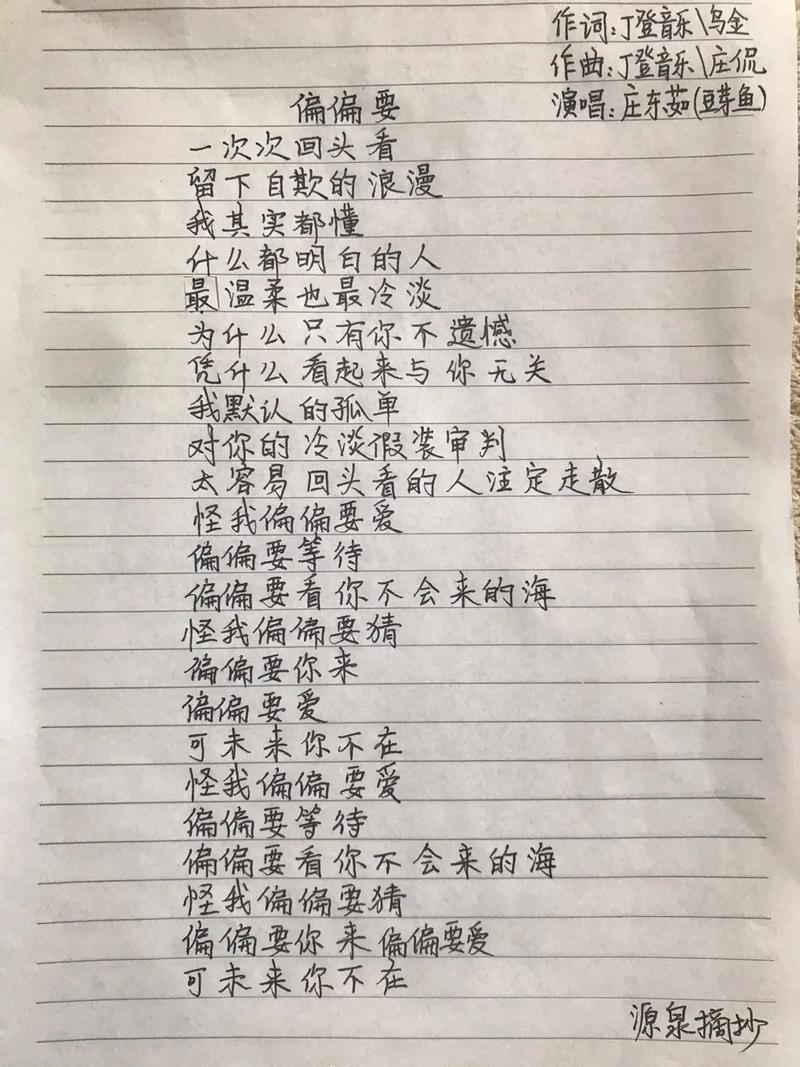 作词:丁登音乐\乌金
作曲:丁登音乐\庄侃
演唱:庄东茹(豆芽鱼)
偏偏要
一次次回头看
留下自欺的浪漫
我其实都懂
什么都明白的人
最温柔也最冷淡
为什么只有你不遗憾
凭什么看起来与你无关
我默认的孤单
对你的冷淡假装审判
太容易回头看的人注定走散
怪我偏偏要爱
偏偏要等待
偏偏要看你不会来的海
怪我偏偏要猜
偏偏要你来
偏偏要爱
可未来你不在
怪我偏偏要爱
偏偏要等待
偏偏要看你不会来的海
怪我偏偏要猜
偏偏要你来偏偏要爱
可未来你不在
源泉摘抄